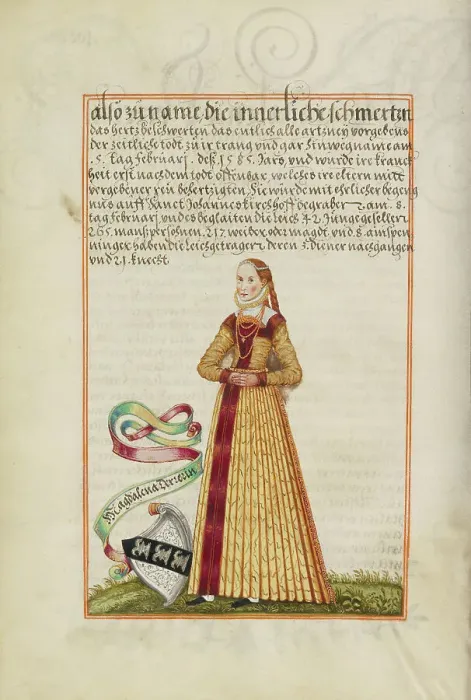 also zu name, die innerliche schmertzn
das hertz beschwerten das entlich alle artzney vorgebens
der zeitliche todt zu ir trang vnd gar hinweg name am
.5. tag februarj. deß 1585. Jars, vnd wurde ire kranck
heit erst nach dem todt offenbar, welches ire eltern mitt
vergebener rein behertzigten, Sie wurde mit ehrlicher begeng
nus auff Sanct Johannes kirchhoff begraben am .8.
tag februarj, vnd es beglaiten die leich 42 Junge gesellen
265. manspersohnen. 217. weiber oder magdt, vnd .8. ainspen
ninger, haben die leich getragen deren 3. diener nachgangen
vnd 21. knecht
Magdalena